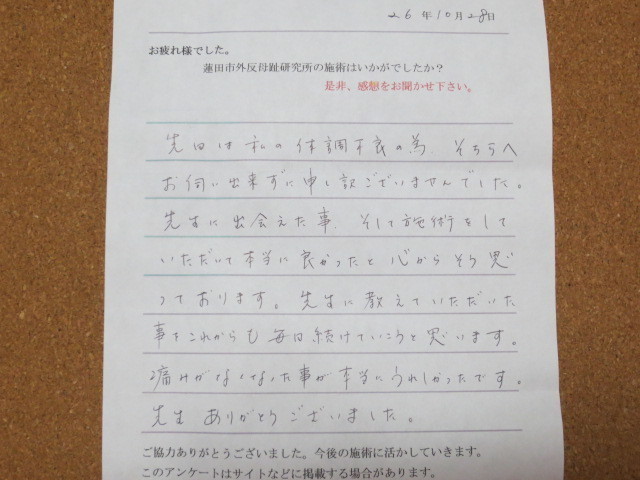 26年10月28日
お疲れ様でした。
蓮田市外反母趾研究所の施術はいかがでしたか？
是非、感想をお聞かせ下さい。
先日は私の体調不良の為 そちらへ
お伺い出来ずに申し訳ございませんでした。
先生に出会えた事 そして施術をして
いただいて本当に良かったと心からそう思
っております。先生に教えていただいた
事をこれからも毎日続けていこうと思います。
痛みがなくなった事が本当にうれしかったです。
先生 ありがとうございました。
ご協力ありがとうございました。今後の施術に活かしていきます。
このアンケートはサイトなどに掲載する場合があります。